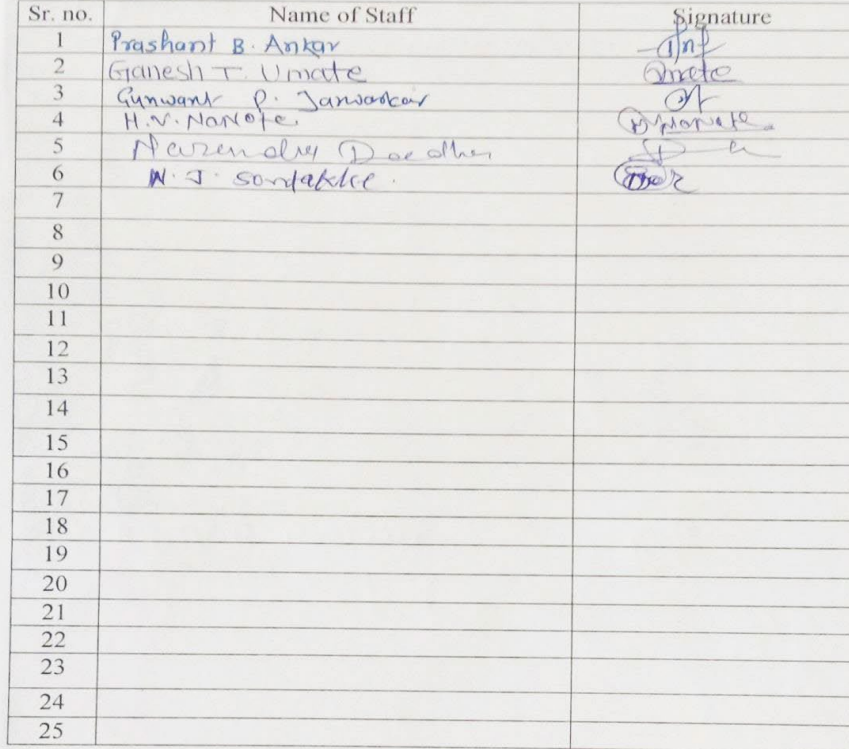 Sr. no. Name of Staff Signature
1 Prashant B. Ankar
2 Ganesh T. Umate Umate
3 Gunwant P. Janwarkar
4 H.V. NaNote. Nanote
5 Narendra Deodhar
6 N. J. Sontakke.
7
8
9
10
11
12
13
14
15
16
17
18
19
20
21
22
23
24
25